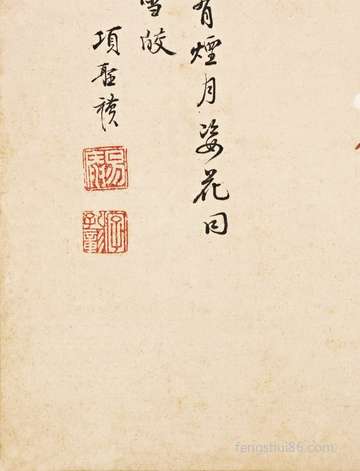 有煙月姿花同
雪皎
項聖謨
fengshui86.com